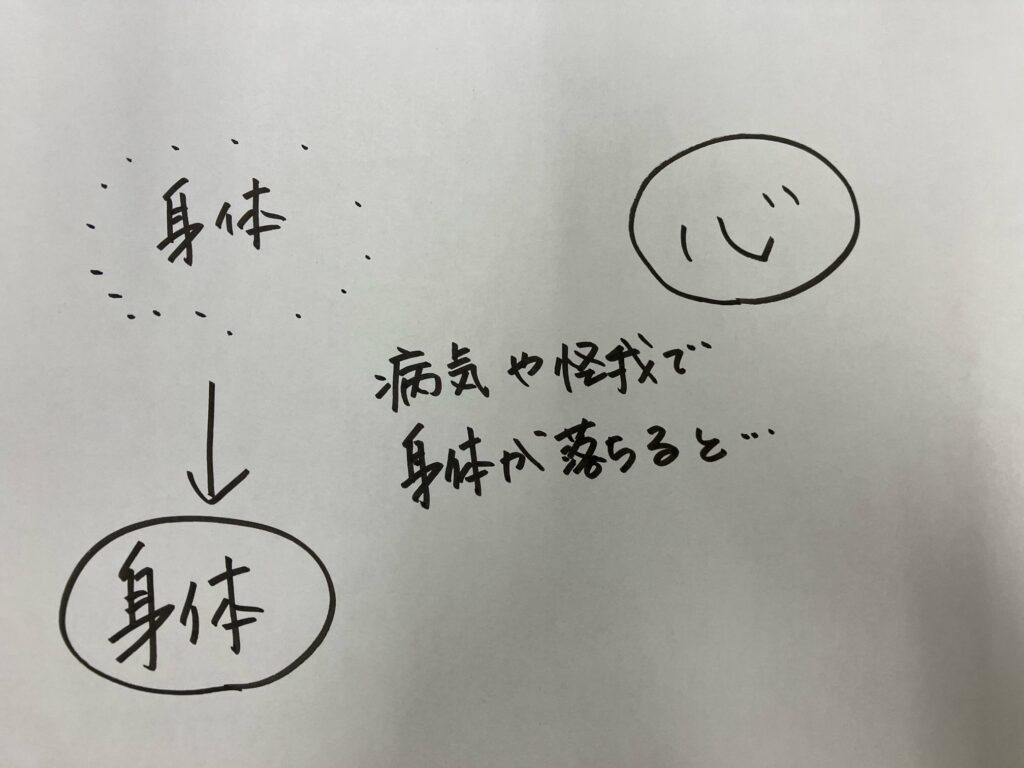 身体
心
病気や怪我で
身体が落ちると…
身体